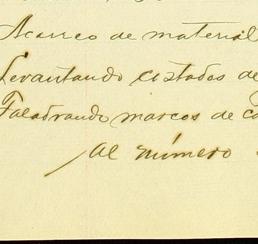 Acarreo de material
Levantando costados de
Taladrando marcos de
Al número